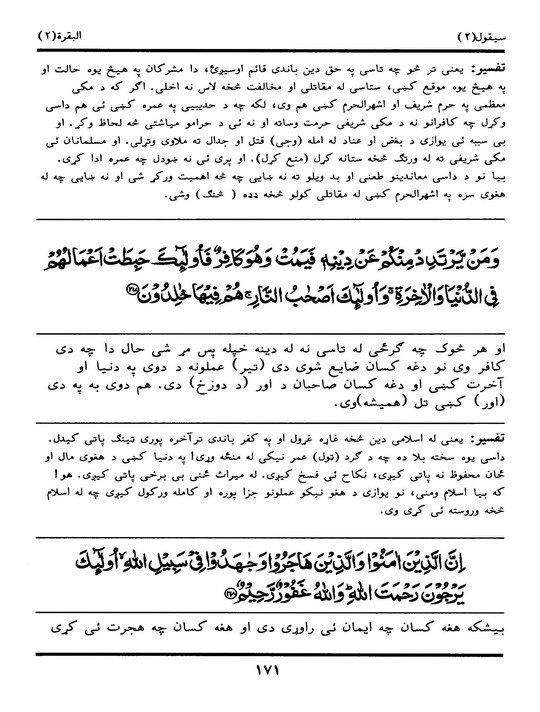 سیقول(۲) البقرة(۲)
تفسیر: یعنی تر څو چه تاسی په حق دین باندی قائم اوسیږئ، دا مشرکان په هیڅ یوه حالت او
په هیڅ یوه موقع کښی، ستاسی له مقاتلی او مخالفت څخه لاس نه اخلی. اگر که د مکی
معظمی په حرم شریف او اشهرالحرم کښی هم وی، لکه چه د حدیبیی په عمره کښی ئی هم داسی
وکړل چه کافرانو نه د مکی شریفی حرمت وساته او نه ئی د حرامو میاشتی څخه لحاظ وکړ. او
بی سببه ئی یوازی د بغض او عناد له امله (وجی) قتل او جدال ته ملاوی وتړلی. او مسلمانان ئی
مکی شریفی ته له ورتګ څخه ستانه کړل (منع کړل). او پری ئی نه ښودل چه عمره ادا کړی.
بیا نو د داسی معاندینو طعنی او بد ویلو ته نه ښایی چه څه اهمیت ورکړ شی او نه ښایی چه له
هغوی سره په اشهرالحرم کښی له مقاتلی کولو څخه ډډه ( څنګ) وشی.
وَمَنْ يَّرْتَدِدْ مِنْكُمْ عَنْ دِيْنِهٖ فَيَمُتْ وَهُوَ كَافِرٌ فَاُولٰٓئِكَ حَبِطَتْ اَعْمَالُهُمْ
فِى الدُّنْيَا وَالْاٰخِرَةِ ۚ وَاُولٰٓئِكَ اَصْحٰبُ النَّارِ ۚ هُمْ فِيْهَا خٰلِدُوْنَ
او هر څوک چه ګرځی له تاسی نه له دینه خپله پس مړ شی حال دا چه دی
کافر وی نو دغه کسان ضایع شوی دی (تیر) عملونه د دوی په دنیا او
آخرت کښی او دغه کسان صاحبان د اور (د دوزخ) دی. هم دوی به په دی
(اور) کښی تل (همیشه)وی.
تفسیر: یعنی له اسلامی دین څخه غاړه غړول او په کفر باندی ترآخره پوری ټینګ پاتی کیدل.
داسی یوه سخته بلا ده چه د ګرد (ټول) عمر نیکی له منځه وړی! په دنیا کښی د هغوی مال او
ځان محفوظ نه پاتی کیږی، نکاح ئی فسخ کیږی. له میراث ځنی بی برخی پاتی کیږی. هو!
که بیا اسلام ومنی، نو یوازی د هغو نیکو عملونو جزا پوره او کامله ورکول کیږی چه له اسلام
څخه وروسته ئی کړی وی.
اِنَّ الَّذِيْنَ اٰمَنُوْا وَالَّذِيْنَ هَاجَرُوْا وَجٰهَدُوْا فِىْ سَبِيْلِ اللّٰهِ ۙ اُولٰٓئِكَ
يَرْجُوْنَ رَحْمَتَ اللّٰهِ ۚ وَاللّٰهُ غَفُوْرٌ رَّحِيْمٌ
بیشکه هغه کسان چه ایمان ئی راوړی دی او هغه کسان چه هجرت ئی کړی
۱۷۱